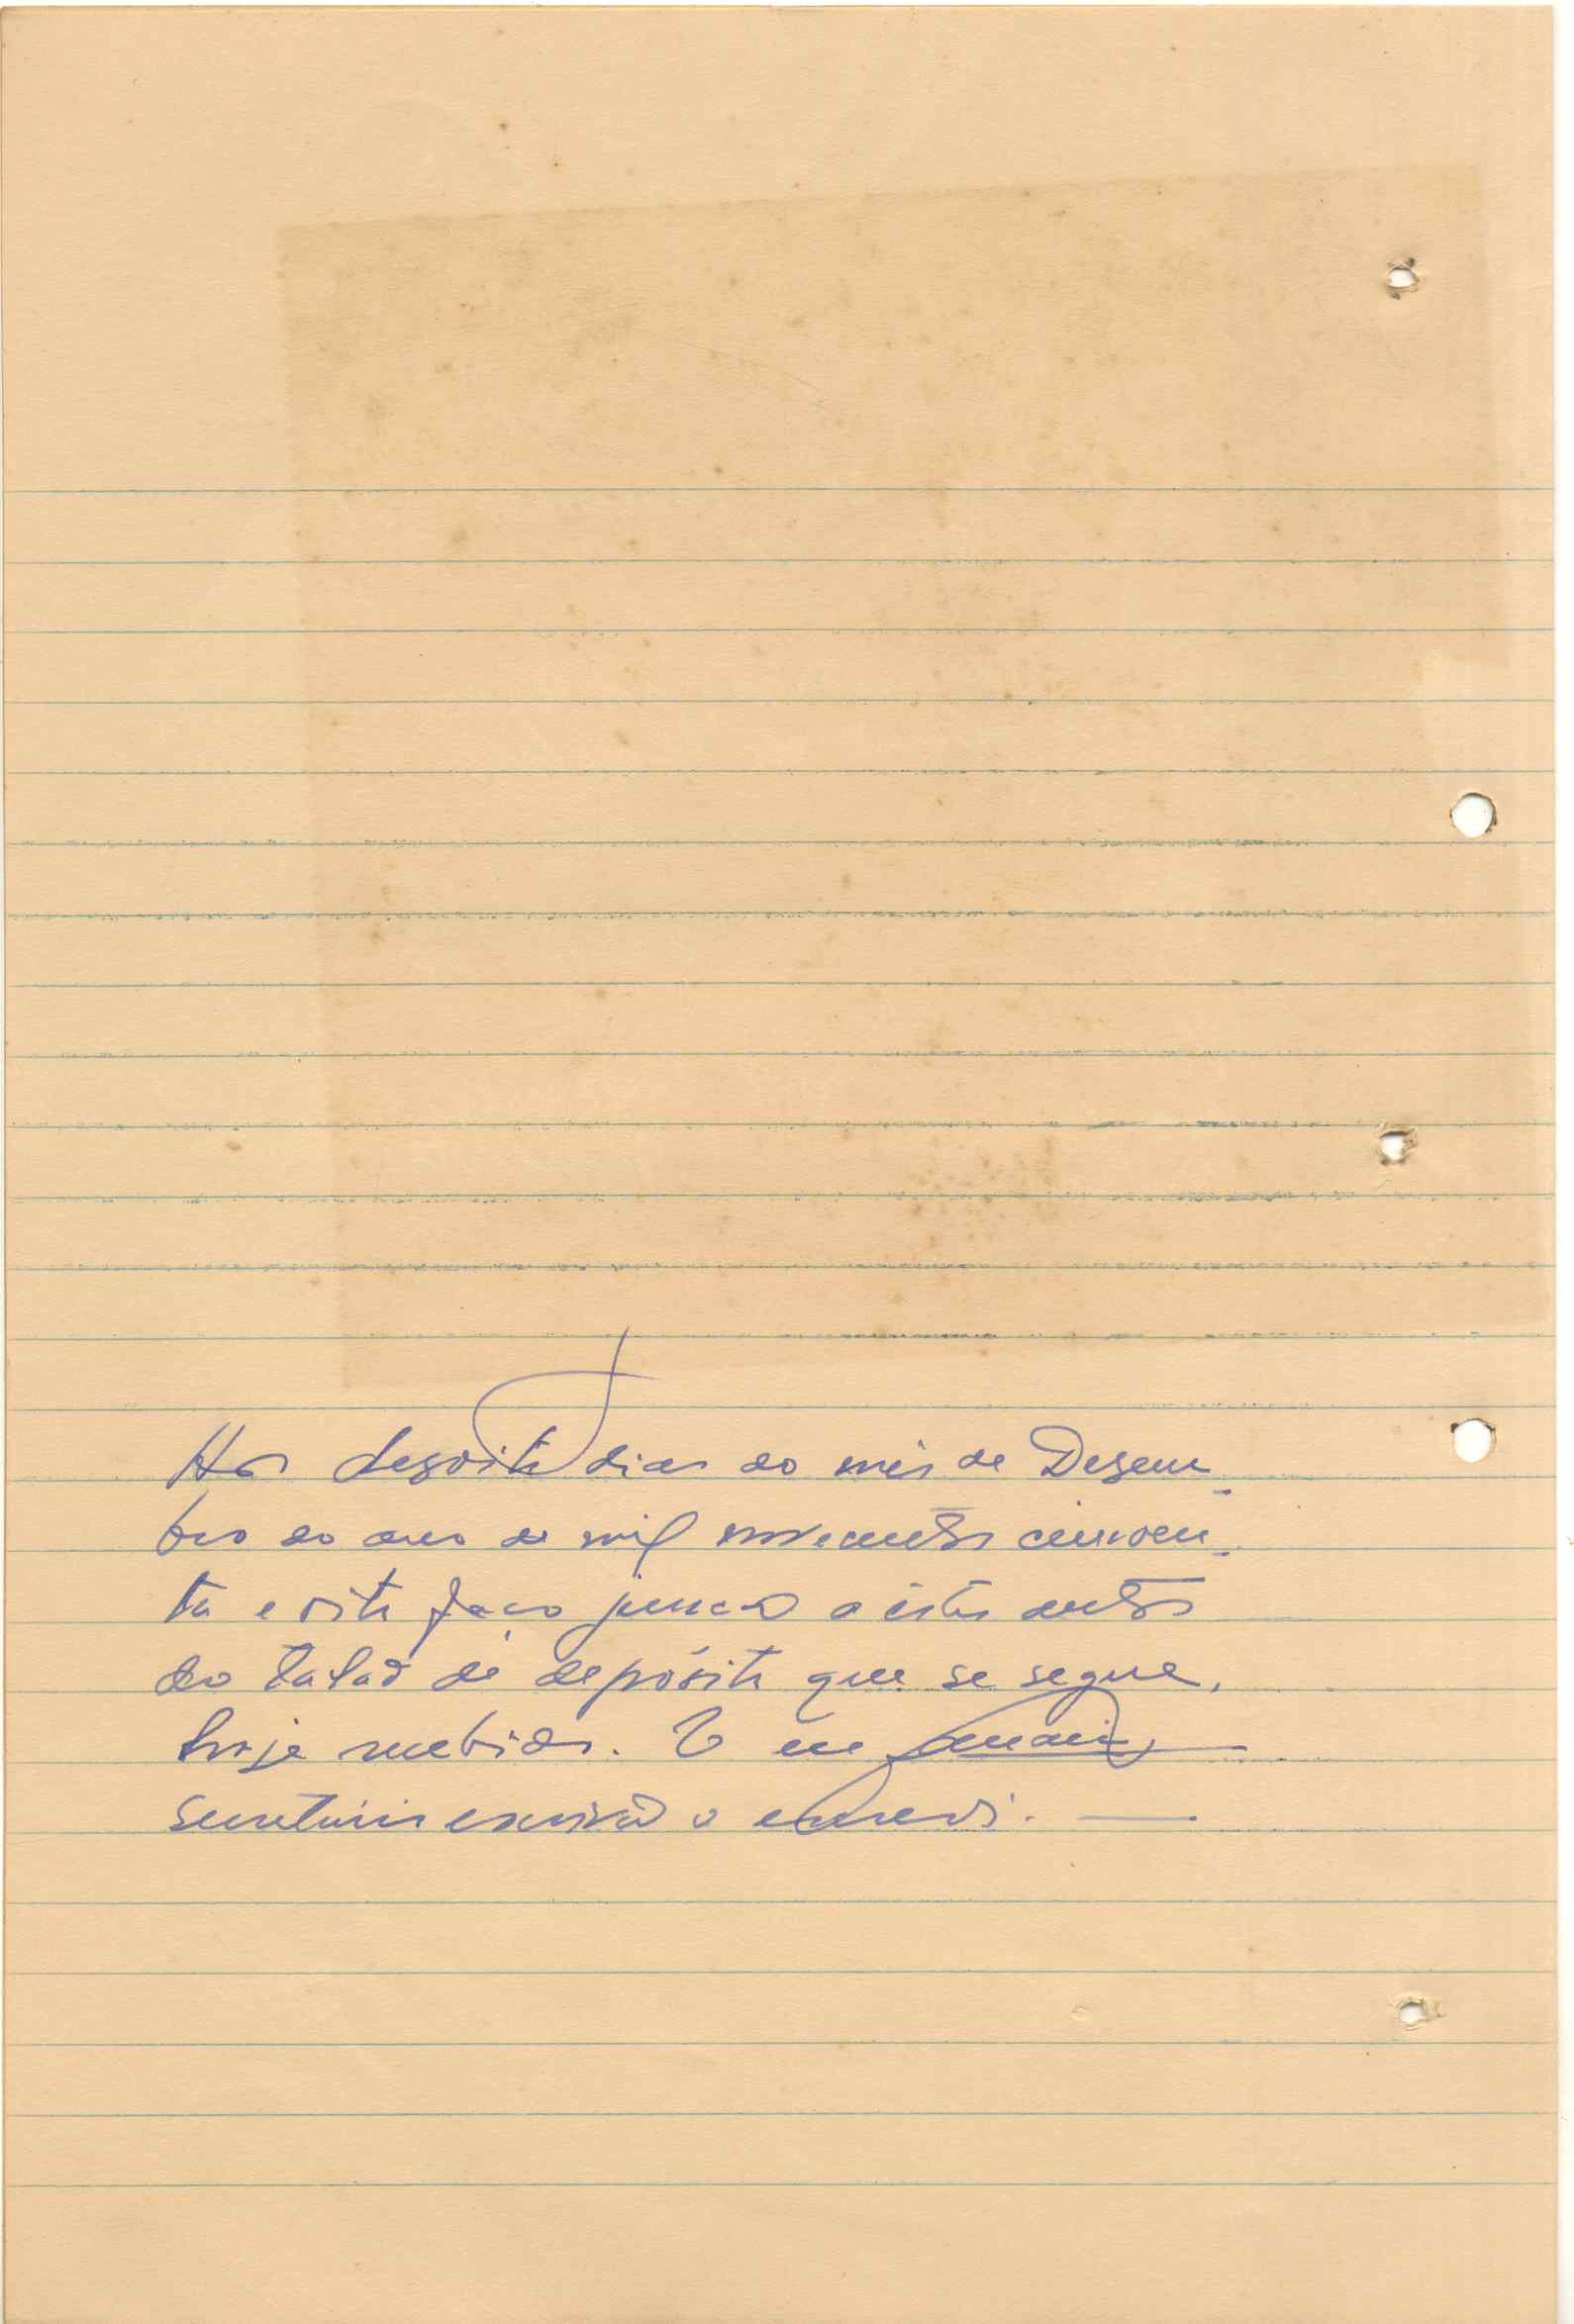 Aos desoito dias do mês de Dezem-
bro do ano de mil novecentos cincoen-
ta e oito faço junção a êstes autos
do talão de depósito que se segue,
hoje recebido. E eu
secretário escrivão o escrevi.